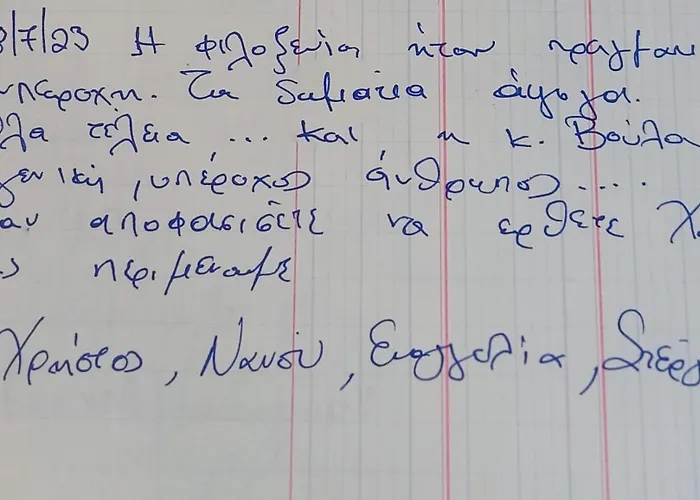 8/7/23 Η φιλοξενία ήταν πραγμα
υπέροχη. Τα δωμάτια άψογα.
λα τέλεια ... και η κ. Βούλα
γενική, υπέροχος άνθρωπος ....
αν αποφασίσετε να ερθετε Χ
ς περιμεναμε
Χρήστος, Νανσύ, Ευαγγελία, Σπύρο